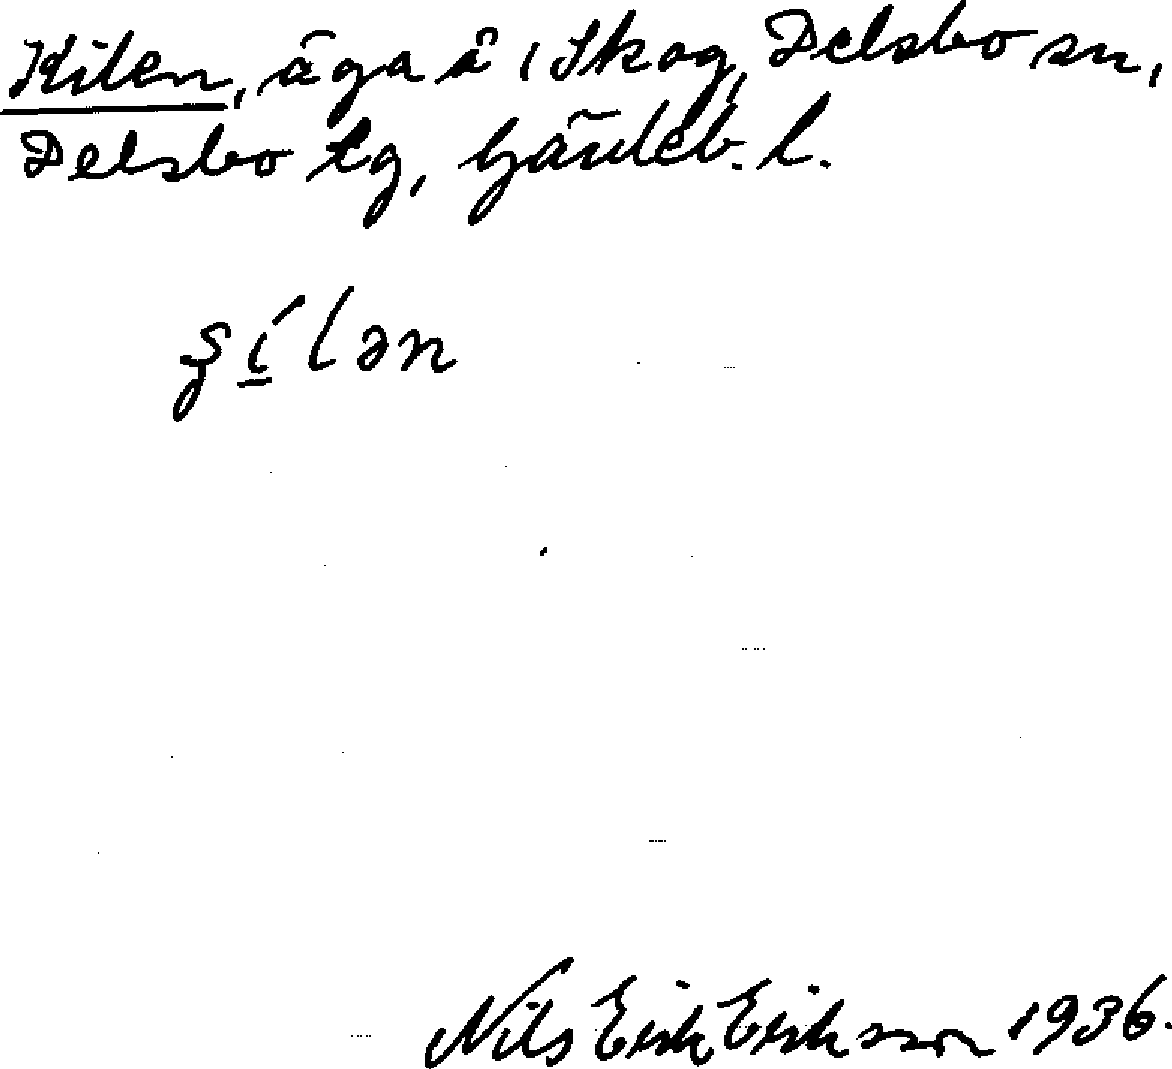 Kilen, äga å i Skog, Delsbo sn,
Delsbo tg, Gävleb. l.
ʂílən
Nils Erik Eriksson 1936.